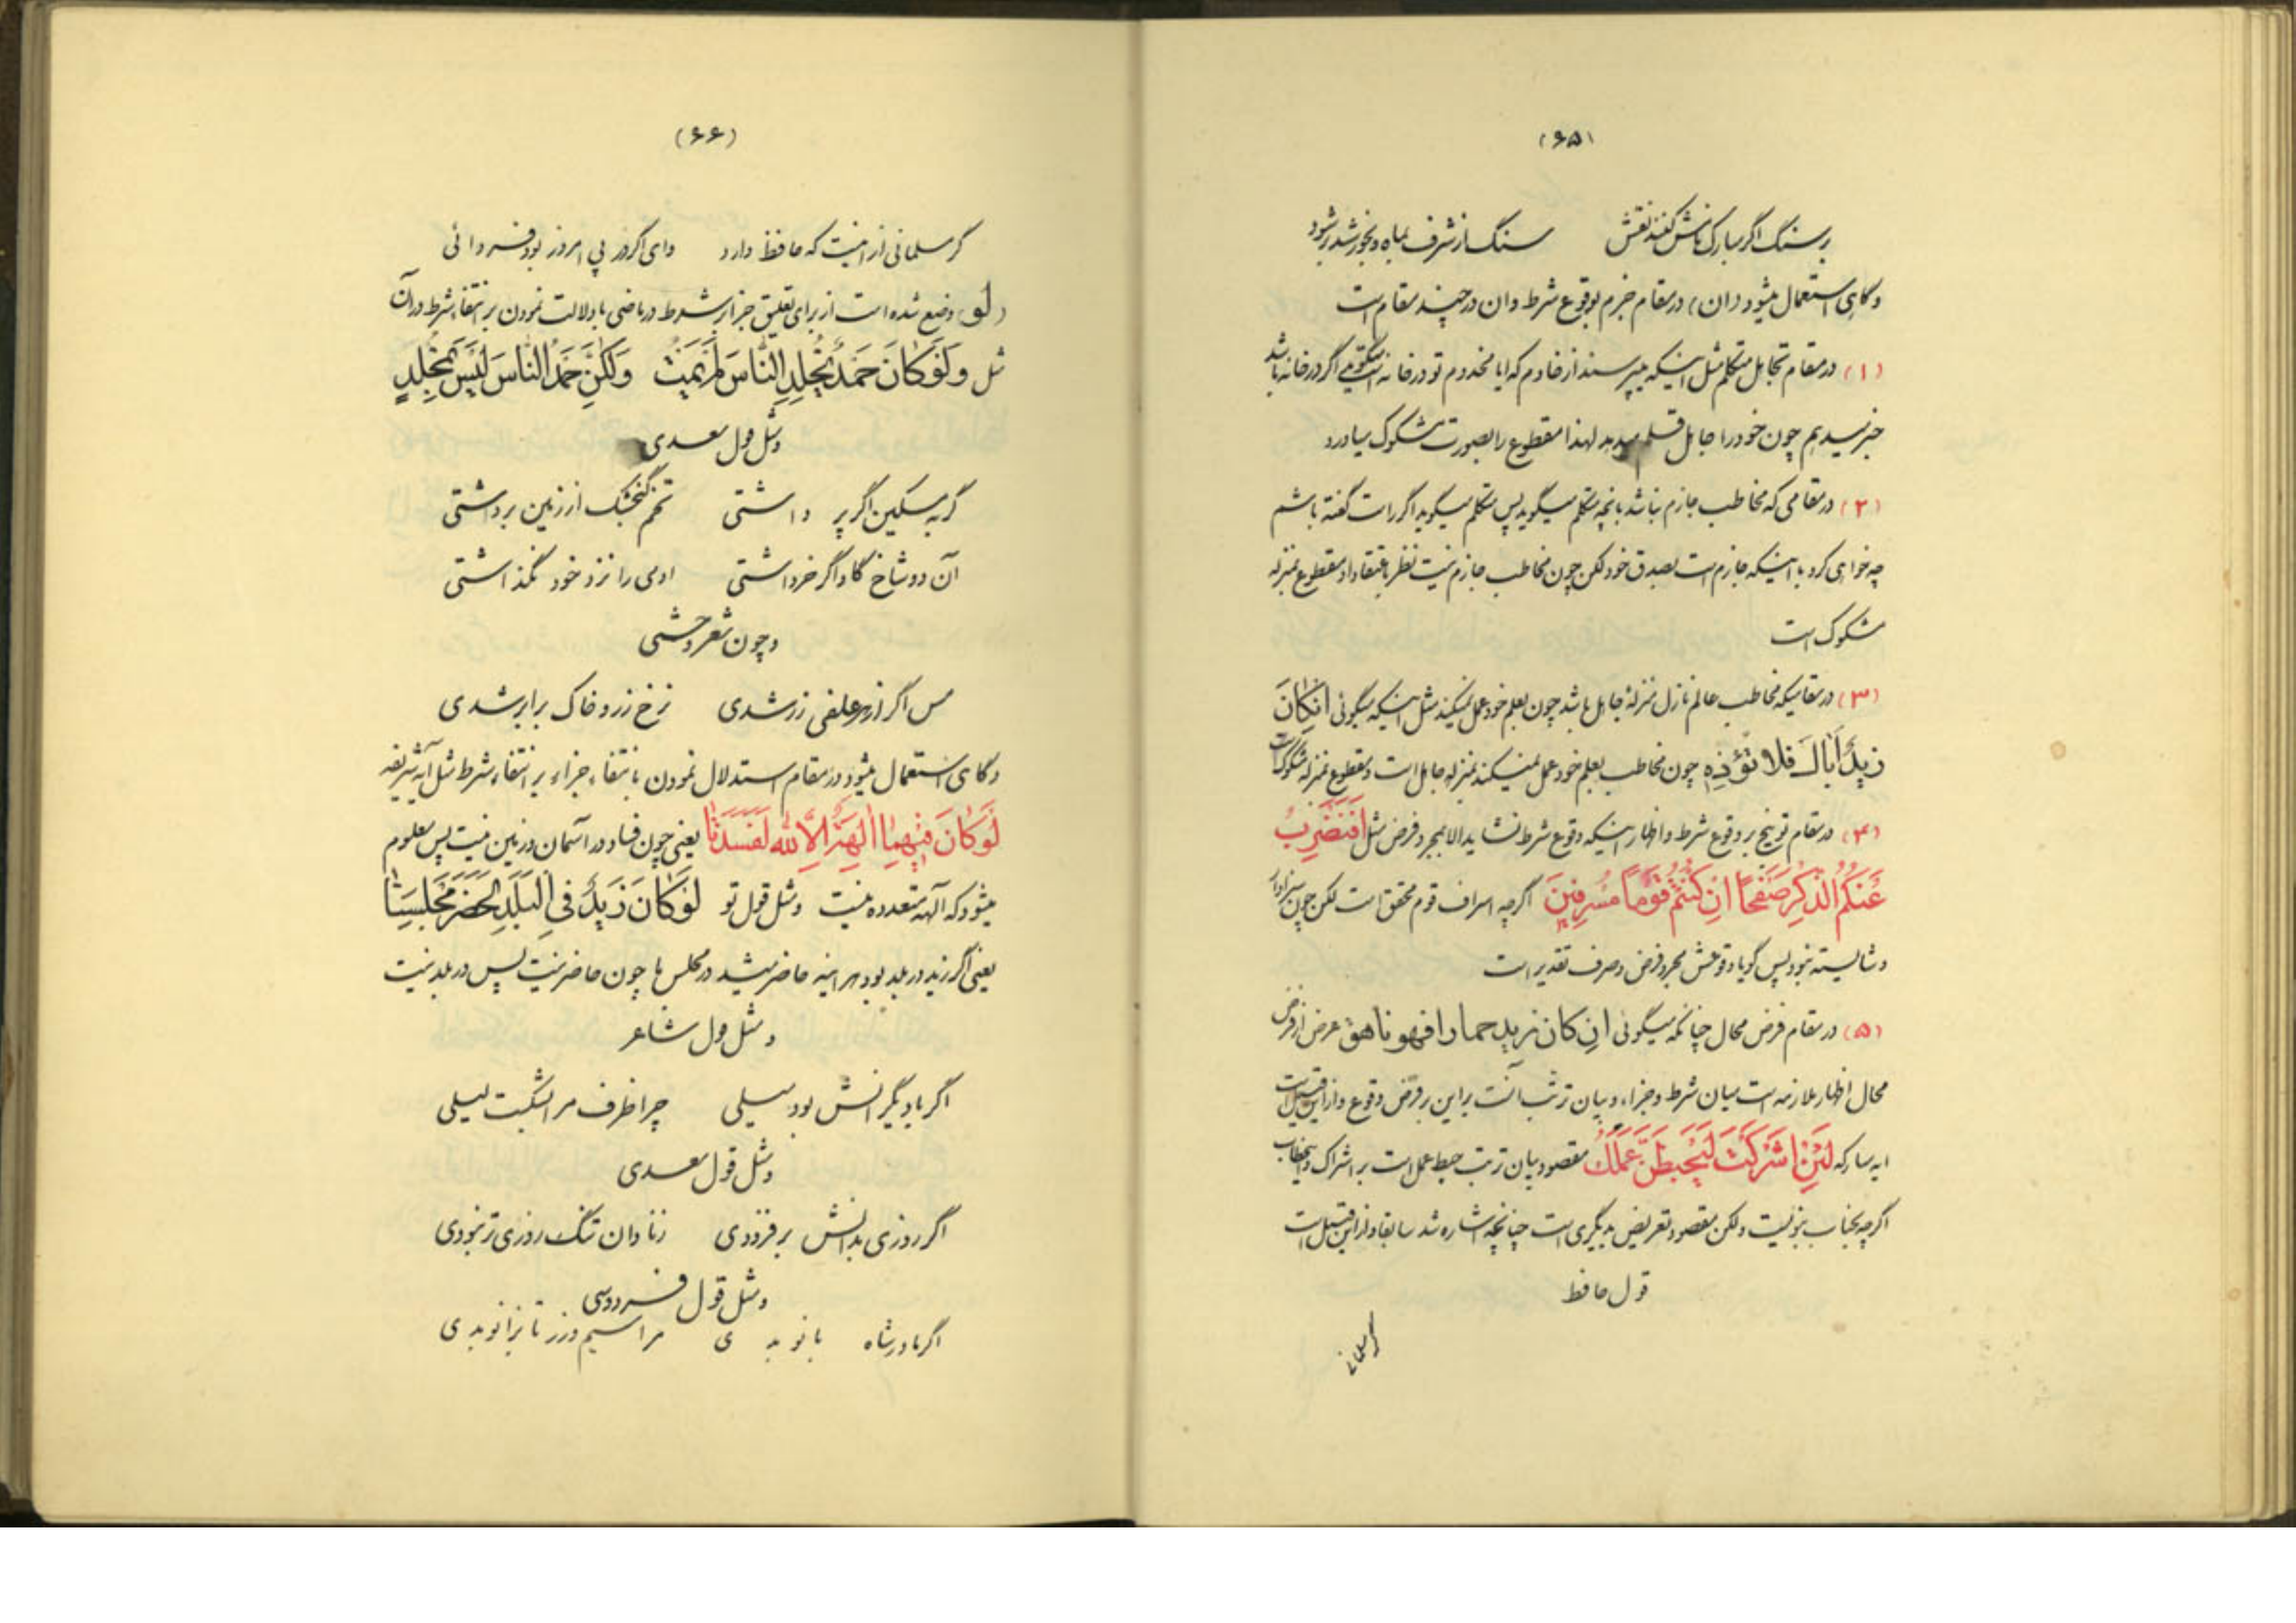 (۶۵)
بر سنگ اگر مبارک نامش کنند نقش سنگ از شرف بماه و بخورشید بر شود
و گاهی استعمال میشود (ان) در مقام جزم بوقوع شرط و ان در چند مقام است
(۱) در مقام تجاهل متکلم مثل اینکه میپرسند از خادم که ایا مخدوم تو در خانه است میگوید اگر در خانه باشد
خبر میدهم چون خود را جاهل قلم میدهد لهذا مقطوع را بصورت مشکوک میاورد
(۲) در مقامی که مخاطب جازم نباشد بانچه متکلم میگوید پس متکلم میگوید اگر راست گفته باشم
چه خواهی کرد با اینکه جازم است بصدق خود لکن چون مخاطب جازم نیست نظر باعتقاد او مقطوع بمنزله
مشکوک است
(۳) در مقامیکه مخاطب عالم نازل منزلهٔ جاهل باشد چون بعلم خود عمل نمیکند مثل اینکه میگوئی انکان
زید أباک فلا تؤذه چون مخاطب بعلم خود عمل نمیکند بمنزله جاهل است و مقطوع بمنزله مشکوک است
(۴) در مقام توبیخ بر وقوع شرط و اظهار اینکه وقوع شرط نشاید الا بمجرد فرض مثل أفنضرب
عنکم الذکر صفحاً ان کنتم قوماً مسرفین اگرچه اسراف قوم محقق است لکن چون سزاوار
و شایسته نبود پس گویا وقوعش مجرد فرض و صرف تقدیر است
(۵) در مقام فرض محال چنانکه میگوئی ان کان زید حمارا فهو ناهق غرض از فرض
محال اظهار ملازمه است میان شرط و جزاء و بیان ترتب آنست بر این بر فرض وقوع و از این قبیل است
ایه مبارکه لئن اشرکت لیحبطن عملک مقصود بیان ترتب حبط عمل است بر اشراک و این خطاب
اگرچه بجناب نبویست ولکن مقصود تعریض بدیگری است چنانچه اشاره شد سابقا و از این قبیل است
قول حافظ
گر مسلمانی
(۶۶)
گر مسلمانی از اینست که حافظ دارد وای اگر از پی امروز بود فردائی
(لو) وضع شده است از برای تعلیق جزا بر شرط در ماضی با دلالت نمودن بر انتفاء شرط در آن
مثل ولو کان حمد یخلد الناس لم یمت ولکن حمد الناس لیس بمخلد
و مثل قول سعدی
گربه مسکین اگر پر داشتی تخم گنجشک از زمین برداشتی
آن دو شاخ گاو اگر خر داشتی ادمی را نزد خود نگذاشتی
و چون شعر وحشی
مس اگر از هر علفی زر شدی نرخ زر و خاک برابر شدی
و گاهی استعمال میشود در مقام استدلال نمودن بانتفاء جزاء بر انتفاء شرط مثل ایه شریفه
لو کان فیهما الهة الا الله لفسدتا یعنی چون فساد در اسمان و زمین نیست پس معلوم
میشود که آلهه متعدده نیست و مثل قول تو لو کان زید فی البلد لحضر مجلسنا
یعنی اگر زید در بلد بود هراینه حاضر میشد در مجلس ما چون حاضر نیست پس در بلد نیست
و مثل قول شاعر
اگر با دیگرانش بود میلی چرا ظرف مرا بشکست لیلی
و مثل قول سعدی
اگر روزی بدانش بر فزودی ز نادان تنگ روزی تر نبودی
و مثل قول فردوسی
اگر مادر شاه بانو بدی مرا سیم و زر تا بزانو بدی